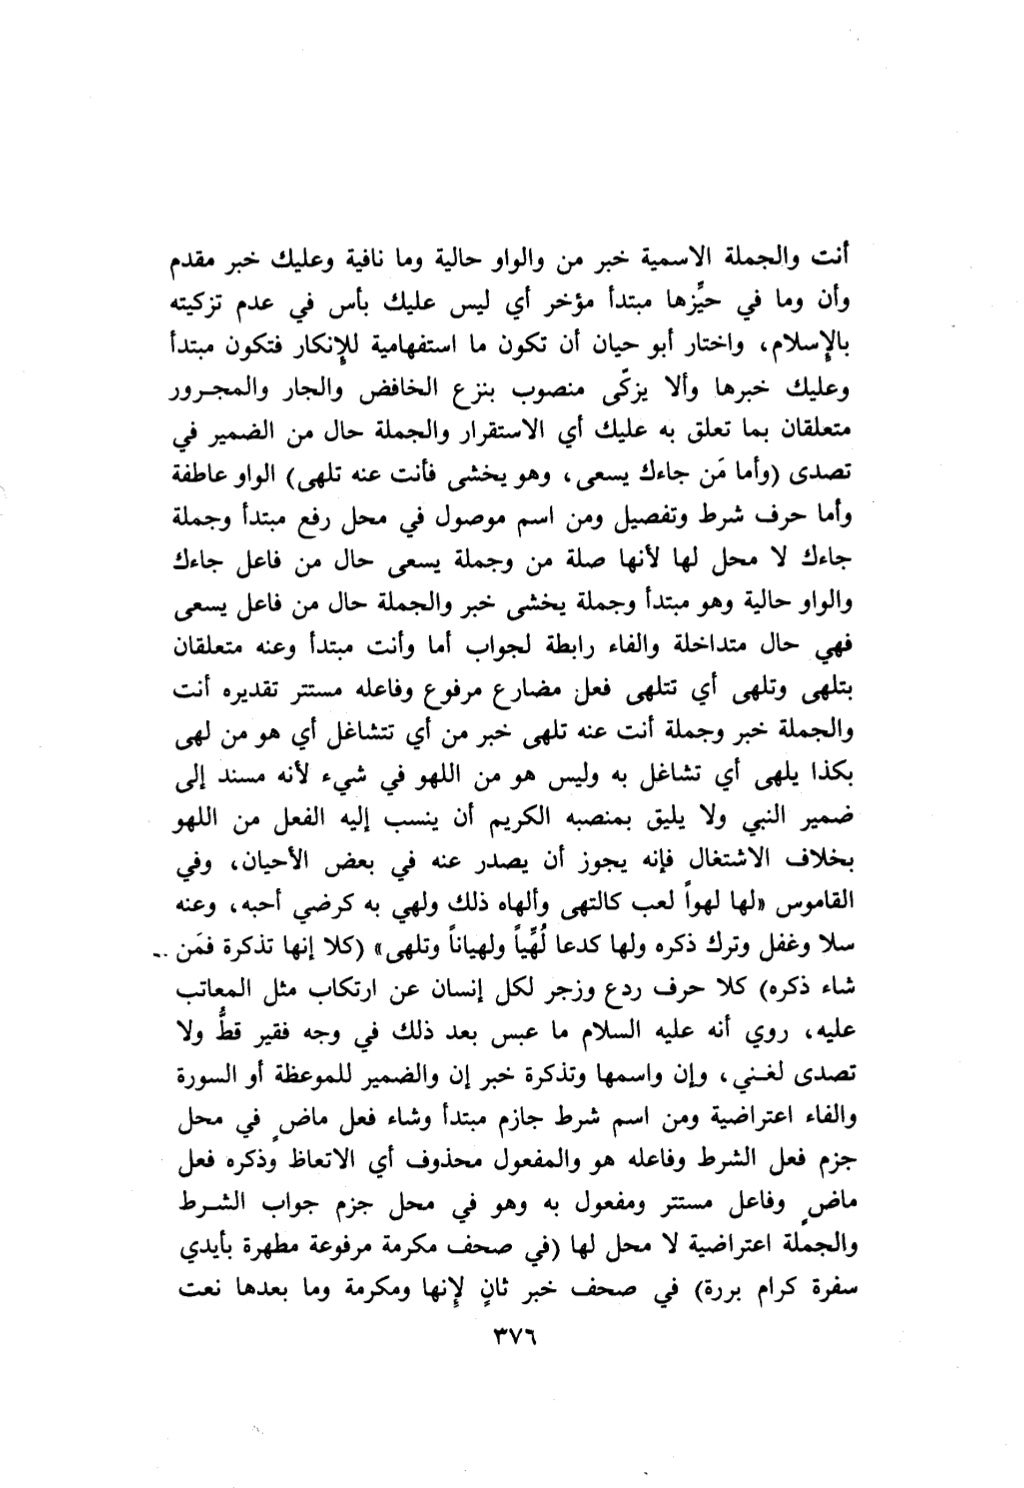 أنت والجملة الاسمية خبر من والواو حالية وما نافية وعليك خبر مقدم
وأن وما في حيِّزها مبتدأ مؤخر أي ليس عليك بأس في عدم تزكيته
بالإسلام، واختار أبو حيان أن تكون ما استفهامية للإنكار فتكون مبتدأ
وعليك خبرها وألا يزكّى منصوب بنزع الخافض والجار والمجرور
متعلقان بما تعلق به عليك أي الاستقرار والجملة حال من الضمير في
تصدى (وأما مَن جاءك يسعى، وهو يخشى فأنت عنه تلهى) الواو عاطفة
وأما حرف شرط وتفصيل ومن اسم موصول في محل رفع مبتدأ وجملة
جاءك لا محل لها لأنها صلة من وجملة يسعى حال من فاعل جاءك
والواو حالية وهو مبتدأ وجملة يخشى خبر والجملة حال من فاعل يسعى
فهي حال متداخلة والفاء رابطة لجواب أما وأنت مبتدأ وعنه متعلقان
بتلهى وتلهى أي تتلهى فعل مضارع مرفوع وفاعله مستتر تقديره أنت
والجملة خبر وجملة أنت عنه تلهى خبر من أي تتشاغل أي هو من لهى
بكذا يلهى أي تشاغل به وليس هو من اللهو في شيء لأنه مسند إلى
ضمير النبي ولا يليق بمنصبه الكريم أن ينسب إليه الفعل من اللهو
بخلاف الاشتغال فإنه يجوز أن يصدر عنه في بعض الأحيان، وفي
القاموس «لها لهواً لعب كالتهى وألهاه ذلك ولهي به كرضي أحبه، وعنه
سلا وغفل وترك ذكره ولها كدعا لُهِّياً ولهياناً وتلهى» (كلا إنها تذكرة فمَن
شاء ذكره) كلا حرف ردع وزجر لكل إنسان عن ارتكاب مثل المعاتب
عليه، روي أنه عليه السلام ما عبس بعد ذلك في وجه فقير قطُّ ولا
تصدى لغني، وإن واسمها وتذكرة خبر إن والضمير للموعظة أو السورة
والفاء اعتراضية ومن اسم شرط جازم مبتدأ وشاء فعل ماضٍ في محل
جزم فعل الشرط وفاعله هو والمفعول محذوف أي الاتعاظ وذكره فعل
ماضٍ وفاعل مستتر ومفعول به وهو في محل جزم جواب الشرط
والجملة اعتراضية لا محل لها (في صحف مكرمة مرفوعة مطهرة بأيدي
سفرة كرام بررة) في صحف خبر ثانٍ لإنها ومكرمة وما بعدها نعت
٣٧٦